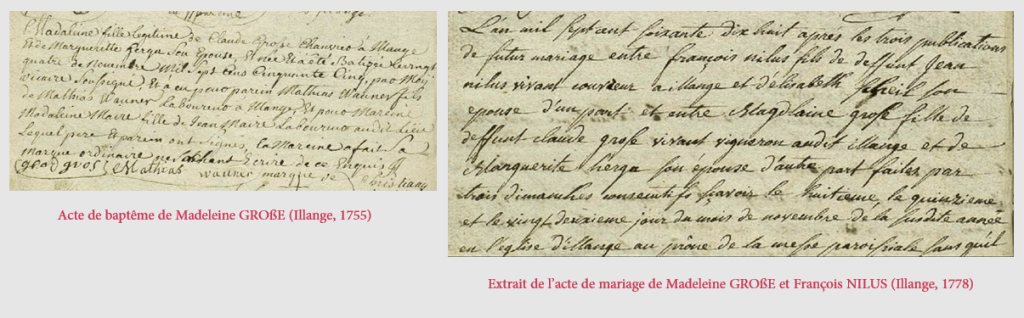 Madaleine fille Legitime de Claude Große Chanvrié à Illange
Et de Marguerette Ferga Son Epouse, Est née Et a été Batisée Le vingt
quatre de Novembre Mil Sept Cens Cinquante Cinq, par Moy
vicaire Soussigné, Et a eu pour parein Mathias Wanner fils
de Mathias Wanner Laboureur à Illange, Et pour Mareine
Madaleine Maire fille de Jean Maire Laboureur audit Lieu
Lequel pere Et parein ont signés, La Mareine a fait Sa
marque ordinaire ne sachant Ecrire de ce Enquis
glod gros Mathias wanner marque de
Acte de baptême de Madeleine GROßE (Illange, 1755)
L'an mil Sept cent soixante dix huit apres les trois publications
de futur mariage entre françois nilus fils de deffunt Jean
nilus vivant couvreur a illange et d'Elisabeth Scheil son
epouse d'un part et entre Magdlaine große fille de
deffunt claude große vivant vigneron audit illange et de
Marguerite herga son épouse d'autre part faites par
trois dimanches consecutifs sçavoir le huitieme, le quinzieme
et le vingt deuxieme jour du mois de novembre de la susdite année
en l'eglise d'illange au prône de la messe paroissiale sans qu'il
Extrait de l'acte de mariage de Madeleine GROßE et François NILUS (Illange, 1778)